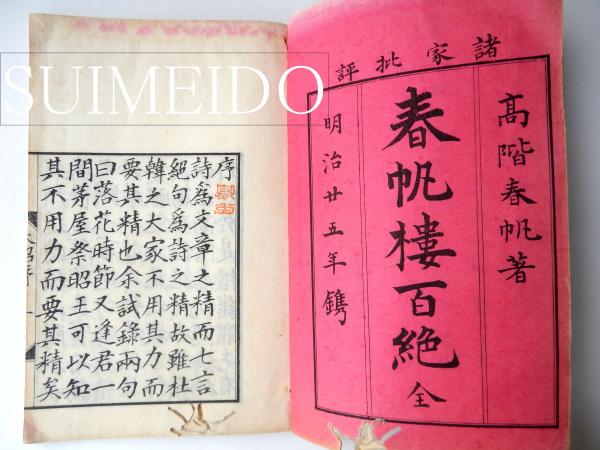 SUIMEIDO
諸家批評
髙階春帆著
春帆樓百絶 全
明治廿五年鐫
序
詩爲文章之精而七言
絕句爲詩之精故雖杜
韓之大家不用其力而
要其精也余試錄兩句
曰落花時節又逢君一
間茅屋祭昭王可以知
其不用力而要其精矣